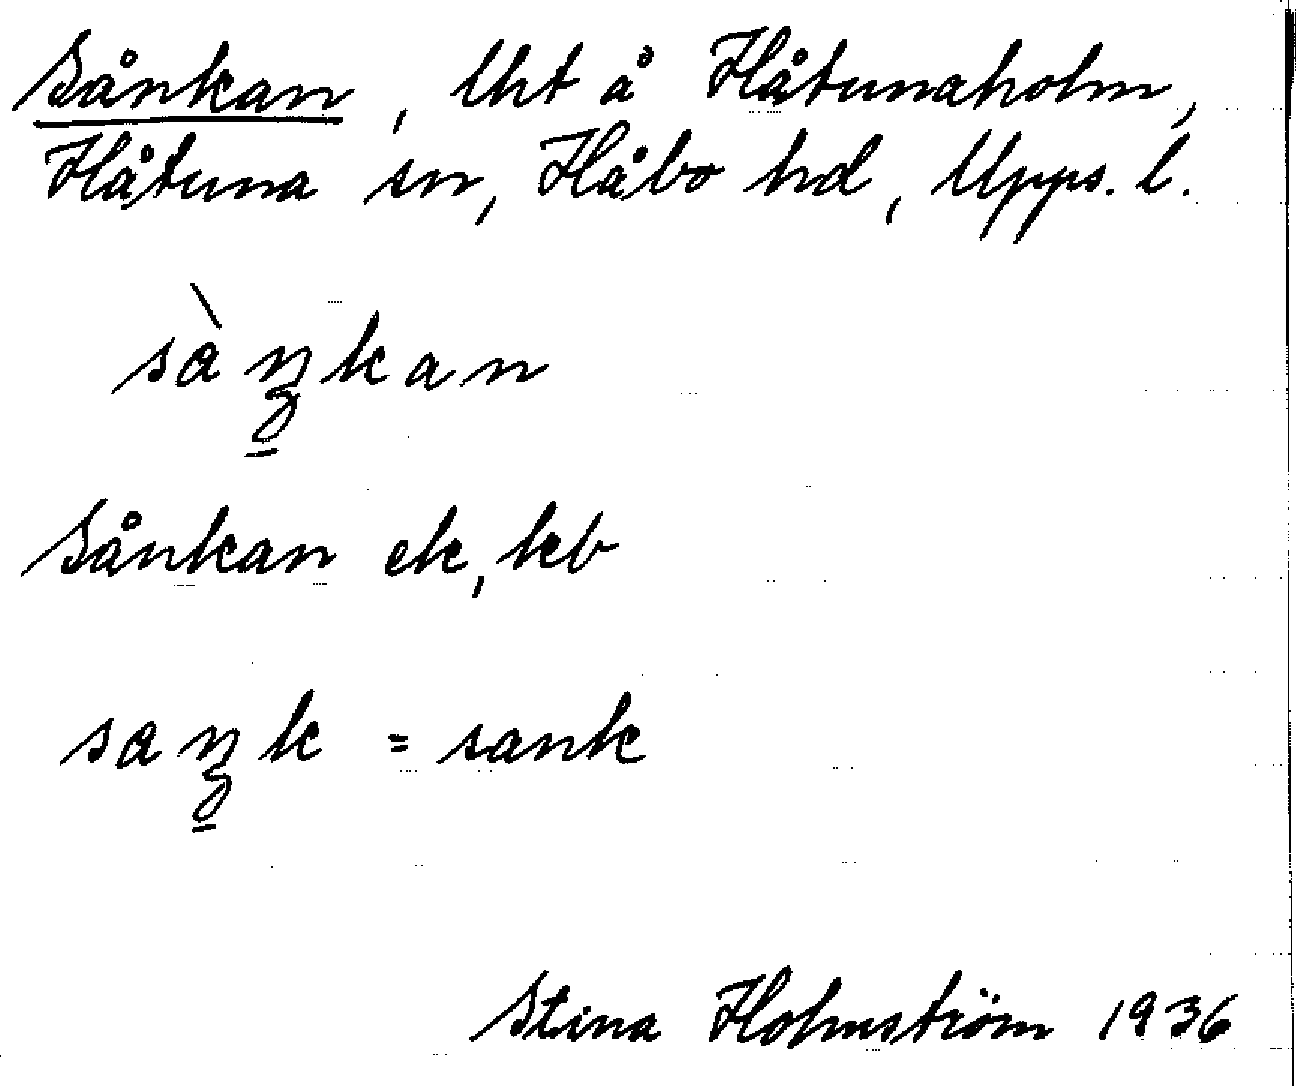 Sånkan, lht å Håtunaholm,
Håtuna sn, Håbo hd, Upps. l.
sàŋkan
Sånkan ek, kb
saŋk = sank
Stina Holmström 1936